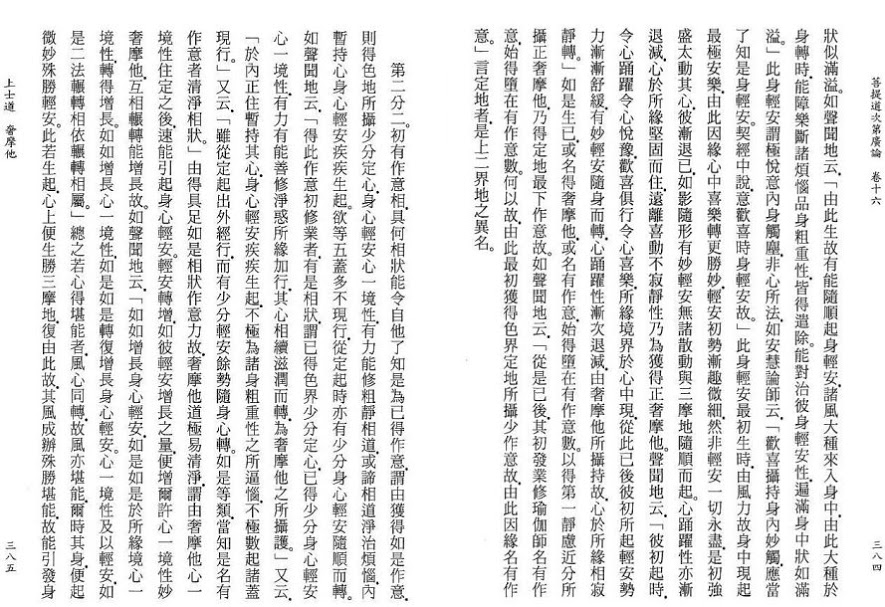 菩提道次第廣論　卷十六
三八四
狀似滿溢。如聲聞地云「由此生故有能隨順起身輕安諸風大種來入身中由此大種於
身轉時能障樂斷諸煩惱品身粗重性皆得遣除。能對治彼身輕安性遍滿身中狀如滿
溢。」此身輕安謂極悅意內身觸塵非心所法如安慧論師云「歡喜攝持身內妙觸應當
了知是身輕安。契經中說意歡喜時身輕安故。」此身輕安最初生時由風力故身中現起
最極安樂。由此因緣心中喜樂轉更勝妙輕安初勢漸趣微細然非輕安一切永盡是初強
盛太動其心彼漸退已如影隨形有妙輕安無諸散動與三摩地隨順而起。心踊躍性亦漸
退減心於所緣堅固而住遠離喜動不寂靜性乃為獲得正奢摩他。聲聞地云「彼初起時
令心踊躍令心悅豫歡喜俱行令心喜樂所緣境界於心中現從此已後彼初所起輕安勢
力漸漸舒緩有妙輕安隨身而轉心踊躍性漸次退減由奢摩他所攝持故心於所緣相寂
靜轉。」如是生已或名得奢摩他或名有作意始得墮在有作意數以得第一靜慮近分所
攝正奢摩他乃得定地最下作意故。如聲聞地云「從是已後其初發業修瑜伽師名有作
意始得墮在有作意數。何以故由此最初獲得色界定地所攝少作意故由此因緣名有作
意。」言定地者是上二界地之異名。
第二分二初有作意相具何相狀能令自他了知是為已得作意謂由獲得如是作意
則得色地所攝少分定心身心輕安心一境性有力能修粗靜相道或諦相道淨治煩惱內
暫持心身心輕安疾疾生起欲等五蓋多不現行從定起時亦有少分身心輕安隨順而轉。
如聲聞地云「得此作意初修業者有是相狀謂已得色界少分定心已得少分身心輕安
心一境性有力有能善修淨惑所緣加行其心相續滋潤而轉為奢摩他之所攝護。」又云
「於內正住暫持其心身心輕安疾疾生起不極為諸身粗重性之所逼惱不極數起諸蓋
現行。」又云「雖從定起出外經行而有少分輕安餘勢隨身心轉。如是等類當知是名有
作意者清淨相狀。」由得具足如是相狀作意力故奢摩他道極易清淨謂由奢摩他心一
境性住定之後速能引起身心輕安。輕安轉增如彼輕安增長之量便增爾許心一境性妙
奢摩他互相輾轉能增長故。如聲聞地云「如如增長身心輕安如是如是於所緣境心一
境性轉得增長。如如增長心一境性如是如是轉復增長身心輕安。心一境性及以輕安如
是二法輾轉相依輾轉相屬。」總之若心得堪能者風心同轉故風亦堪能爾時其身便起
微妙殊勝輕安此若生起心上便生勝三摩地復由此故其風成辦殊勝堪能故能引發身
上士道　奢摩他
三八五